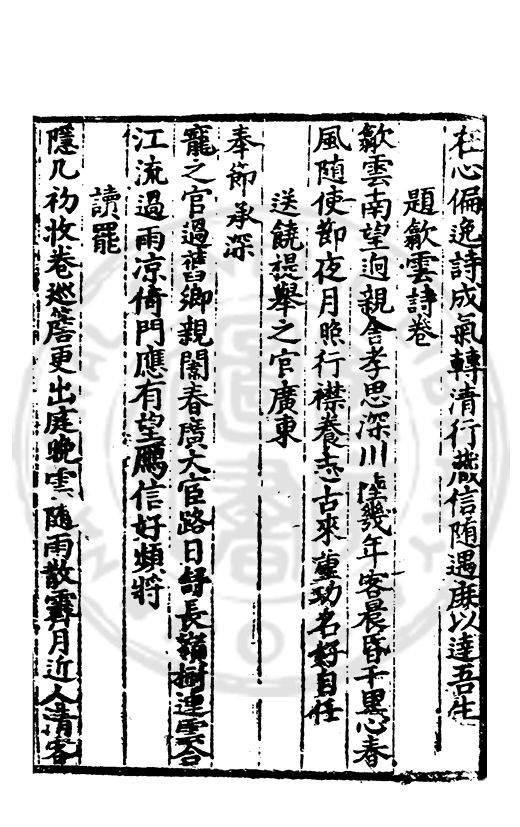 在心偏逸詩成氣轉清行藏信随遇庶以達吾生
題歙雲詩卷
歙雲南望迥親舍孝思深川陸幾年客晨昏千里心春
風随使節夜月照行襟養志古來重功名好自任
送饒提舉之官廣東
奉節承深
寵之官過舊鄉親闈春廣大宦路日舒長嶺樹連雲合
江流過雨凉倚門應有望鴈信好頻將
讀罷
隱几初收卷巡簷更出庭晚雲随雨散霽月近人清客